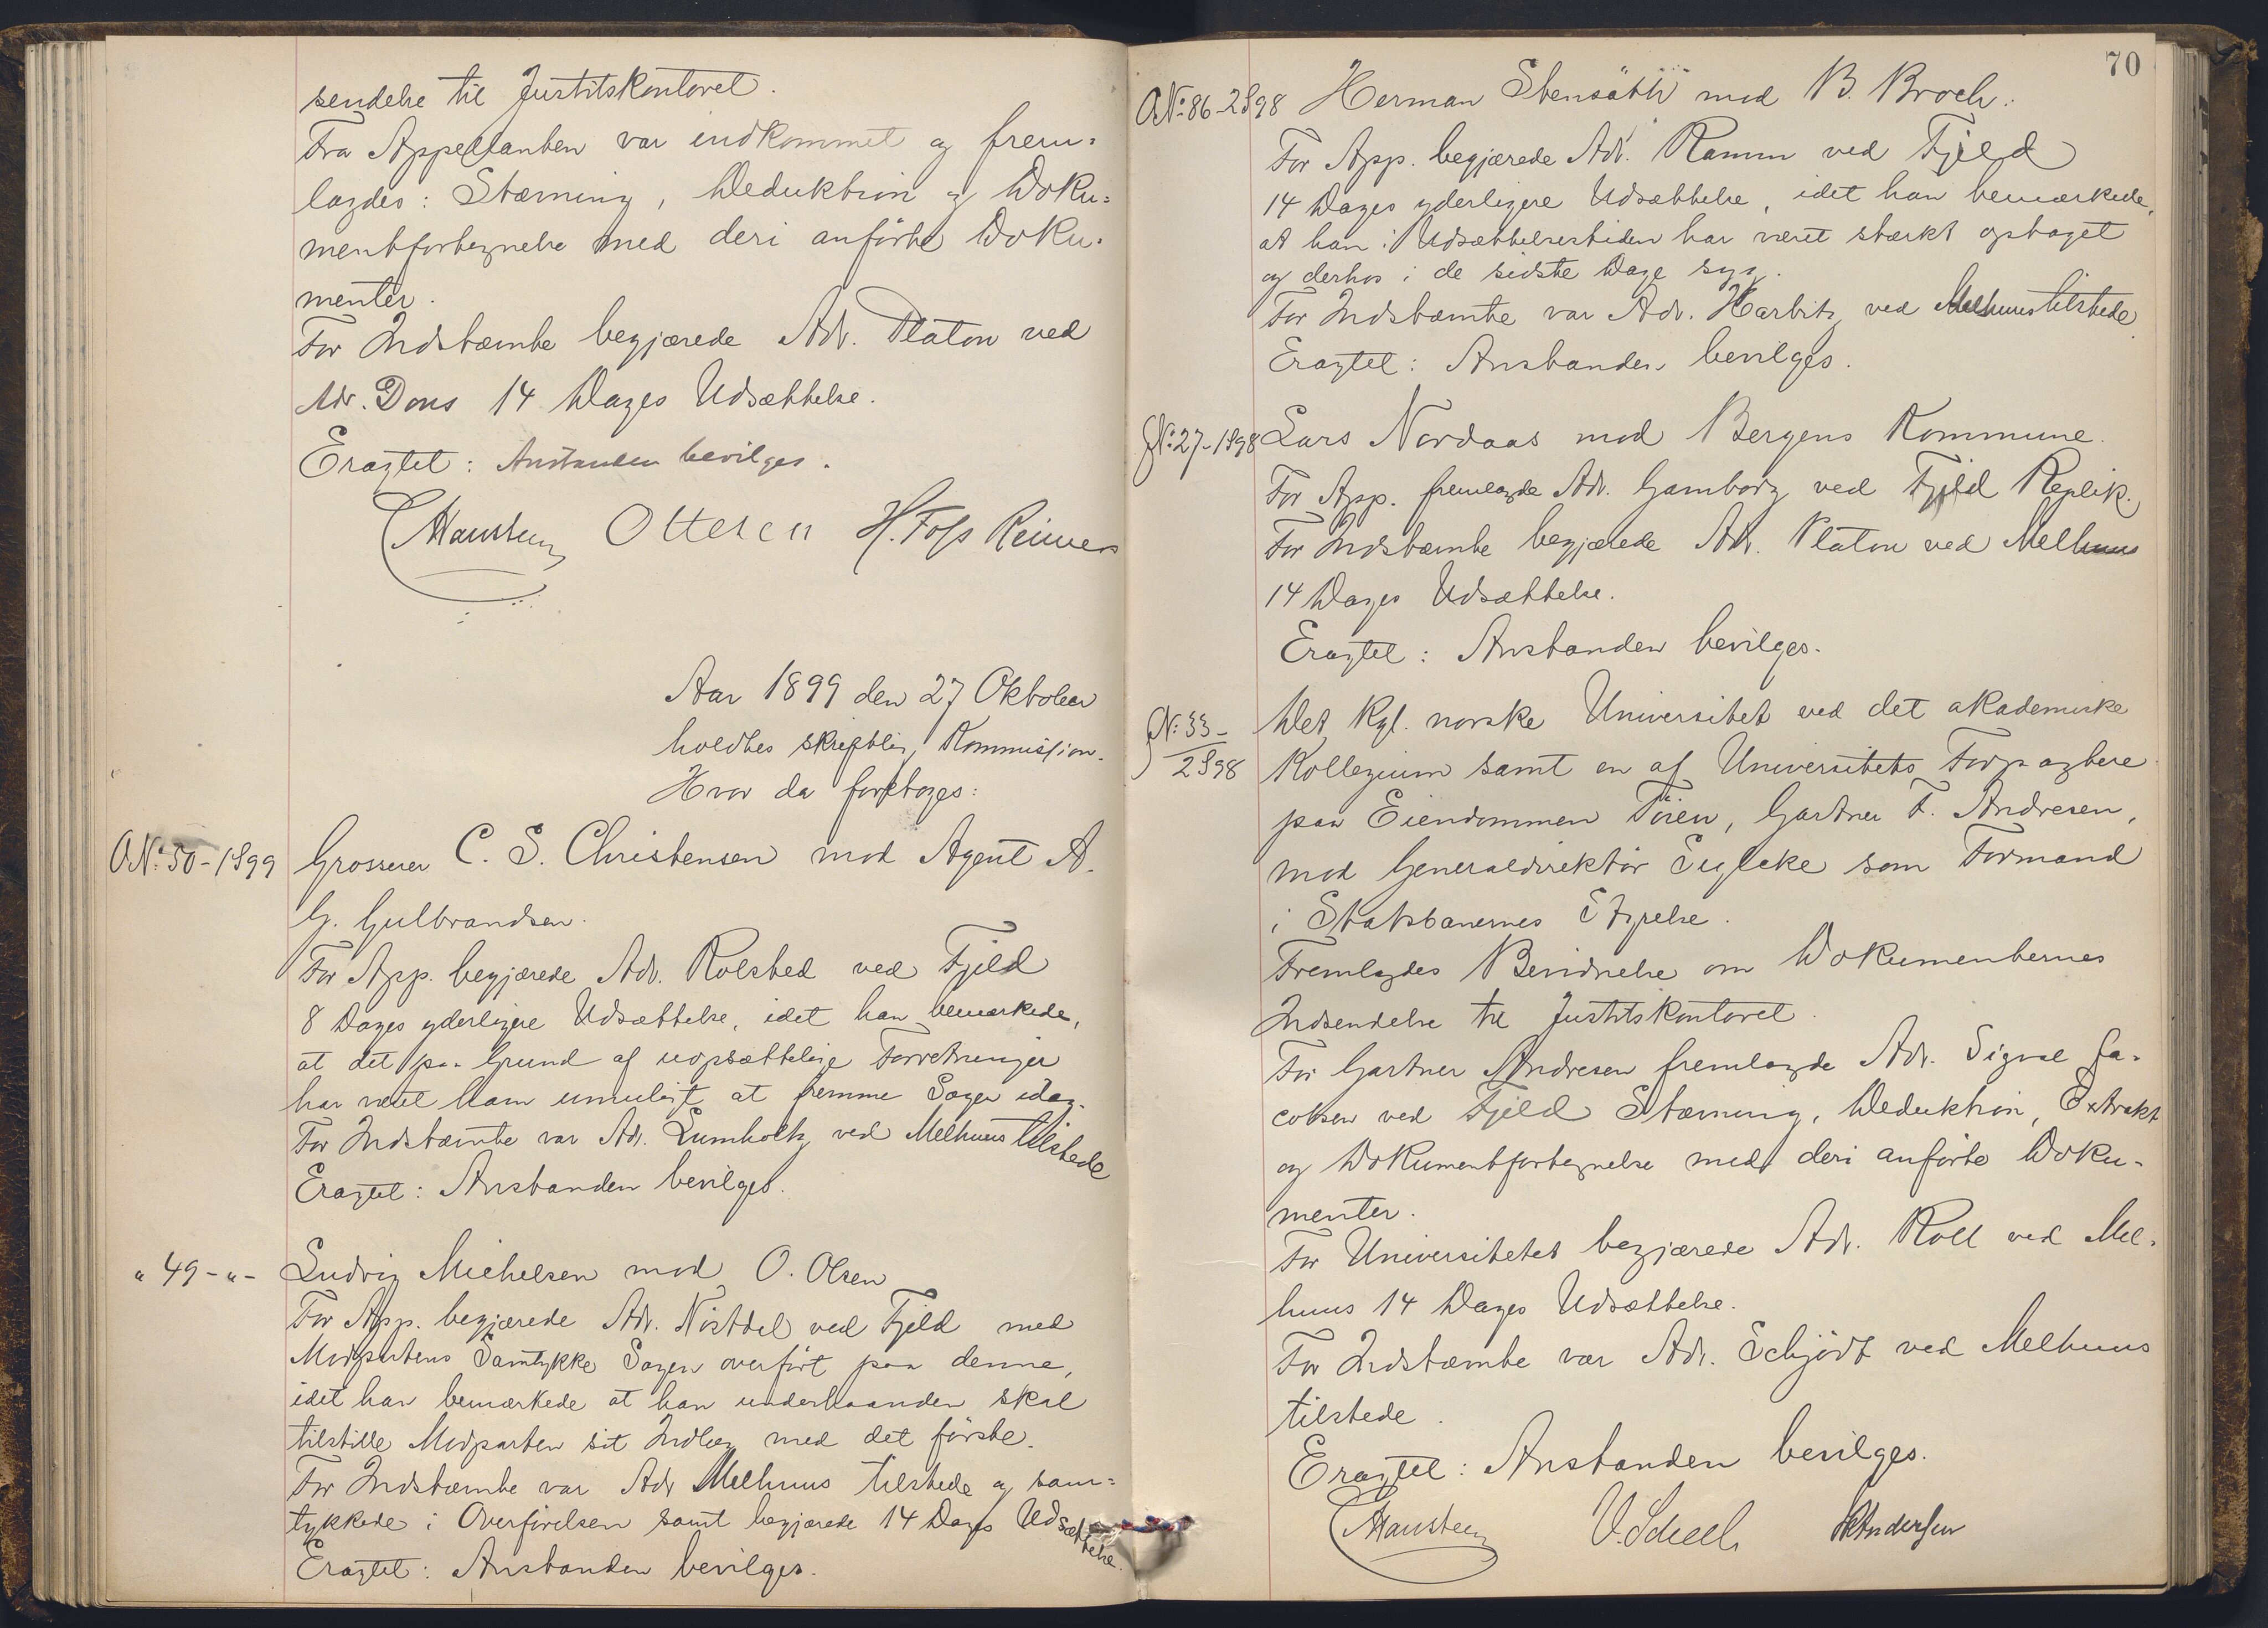 sendelse til Justitskontoret.
Fra Appellanten var indkommet og frem=
lagdes: Stævning, Deduktion og Doku=
mentfortegnelse med deri anførte Doku=
menter.
For Indstævnte begjærede Adv. Platou ved
Adv. Dons 14 Dages Udsættelse.
Eragtet: Anstanden bevilges.
Ottesen H. Foss Reimers
Aar 1899 den 27 Oktober
holdtes skriftlig Kommission.
Hvor da foretoges:
ANo 50-1899 Grosserer C. S. Christensen mod Agent A.
G. Gulbrandsen.
For App. begjærede Adv. Rolsted ved Fjeld
8 Dages yderligere Udsættelse, idet han bemærkede,
at det paa Grund af uopsættelige Forretninger
har været ham umuligt at fremme Sagen idag.
For Indstævnte var Adv. Lumholtz ved Melhuus tilstede
Eragtet: Anstanden bevilges.
" 49-"- Ludvig Michelsen mod O. Olsen
For App. begjærede Adv. Nöstdel ved Fjeld med
Modpartens Samtykke Sagen overført paa denne,
idet han bemærkede at han underhaanden skal
tilstille Modparten sit Indlæg med det første.
For Indstævnte var Adv Melhuus tilstede og sam=
tykkede i Overførelsen samt begjærede 14 Dages Udsættelse.
Eragtet: Anstanden bevilges.
70
ANo 86-2898 Herman Stensäth mod B. Broch.
For App. begjærede Adv. Ramm ved Fjeld
14 Dages yderligere Udsættelse, idet han bemærkede,
at han i Udsættelsestiden har været stærkt optaget
og derhos i de sidste Dage syg.
For Indstævnte var Adv. Harbitz ved Melhuus tilstede
Eragtet: Anstanden bevilges.
No 27-1898 Lars Nordaas mod Bergens Kommune.
For App. fremlagde Adv. Gamborg ved Fjeld Replik.
For Indstævnte begjærede Adv. Platou ved Melhuus
14 Dages Udsættelse.
Eragtet: Anstanden bevilges.
No 33-
2898
Det Kgl. norske Universitet ved det akademiske
Kollegium samt en af Universitets Forpagtere
paa Eiendommen Töien, Gartner F. Andresen,
mod Generaldirektør som Formand
i Statsbanernes Styrelse.
Fremlagdes Bevidnelse om Dokumenternes
Indsendelse til Justitskontoret.
For Gartner Andresen fremlagde Adv. Signal Ja=
cobsen ved Fjeld Stævning, Deduktion, Extrakt
og Dokumentfortegnelse med deri anførte Doku=
menter.
For Universitetet begjærede Adv. Roll ved Mel=
huus 14 Dages Udsættelse.
For Indstævnte var Adv. Schjödt ved Melhuus
tilstede.
Eragtet: Anstanden bevilges.
V. Scheel